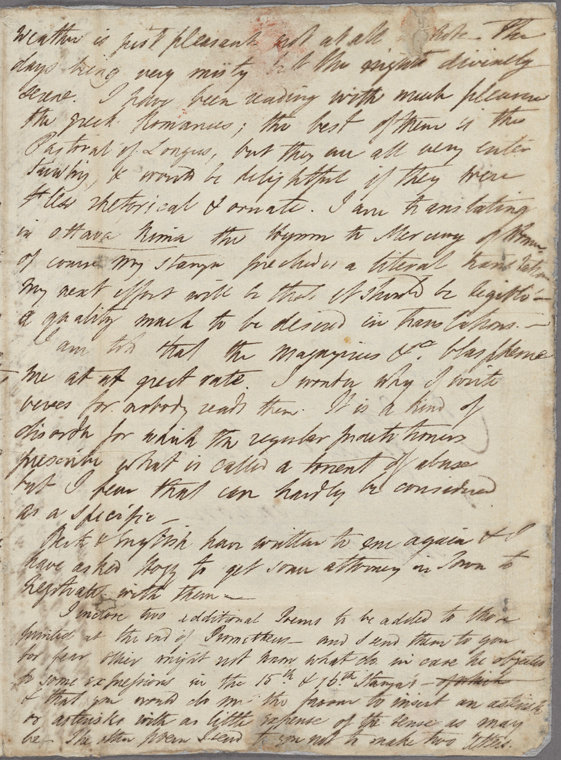 weather is just pleasant not at all hot. The
days being very misty & the nights divinely
serene. I have been reading with much pleasure
the Greek Romances; the best of them is the
Pastoral of Longus, but they are all very enter
taining & would be delightful if they were
less rhetorical & ornate. I am translating
in ottava rima the Hymn to Mercury of Homer
of course my stanza precludes a literal translation
my next effort will be that it should be legible –
a quality much to be desired in translations. –
I am told that the magazines &c. blaspheme
me at a great rate. I wonder why I write
verses for nobody reads them. It is a kind of
disorder for which the regular practitioners
prescribe what is called a torrent of abuse
but I fear that can hardly be considered
as a specific
& English have written to me again & I
have asked Hogg to get some attorney in Town to
negotiate with them –
I inclose two additional Poems to be added to those
printed at the end of Prometheus – and I send them to you
for fear Ollier might not know what to do in case he objected
to some expressions in the 15th & 16th Stanzas –
& that you would do me the favour to insert an asterisk
or asterisks with as little expense of the sense as may
be. The other Poem I send to you not to make two letters.